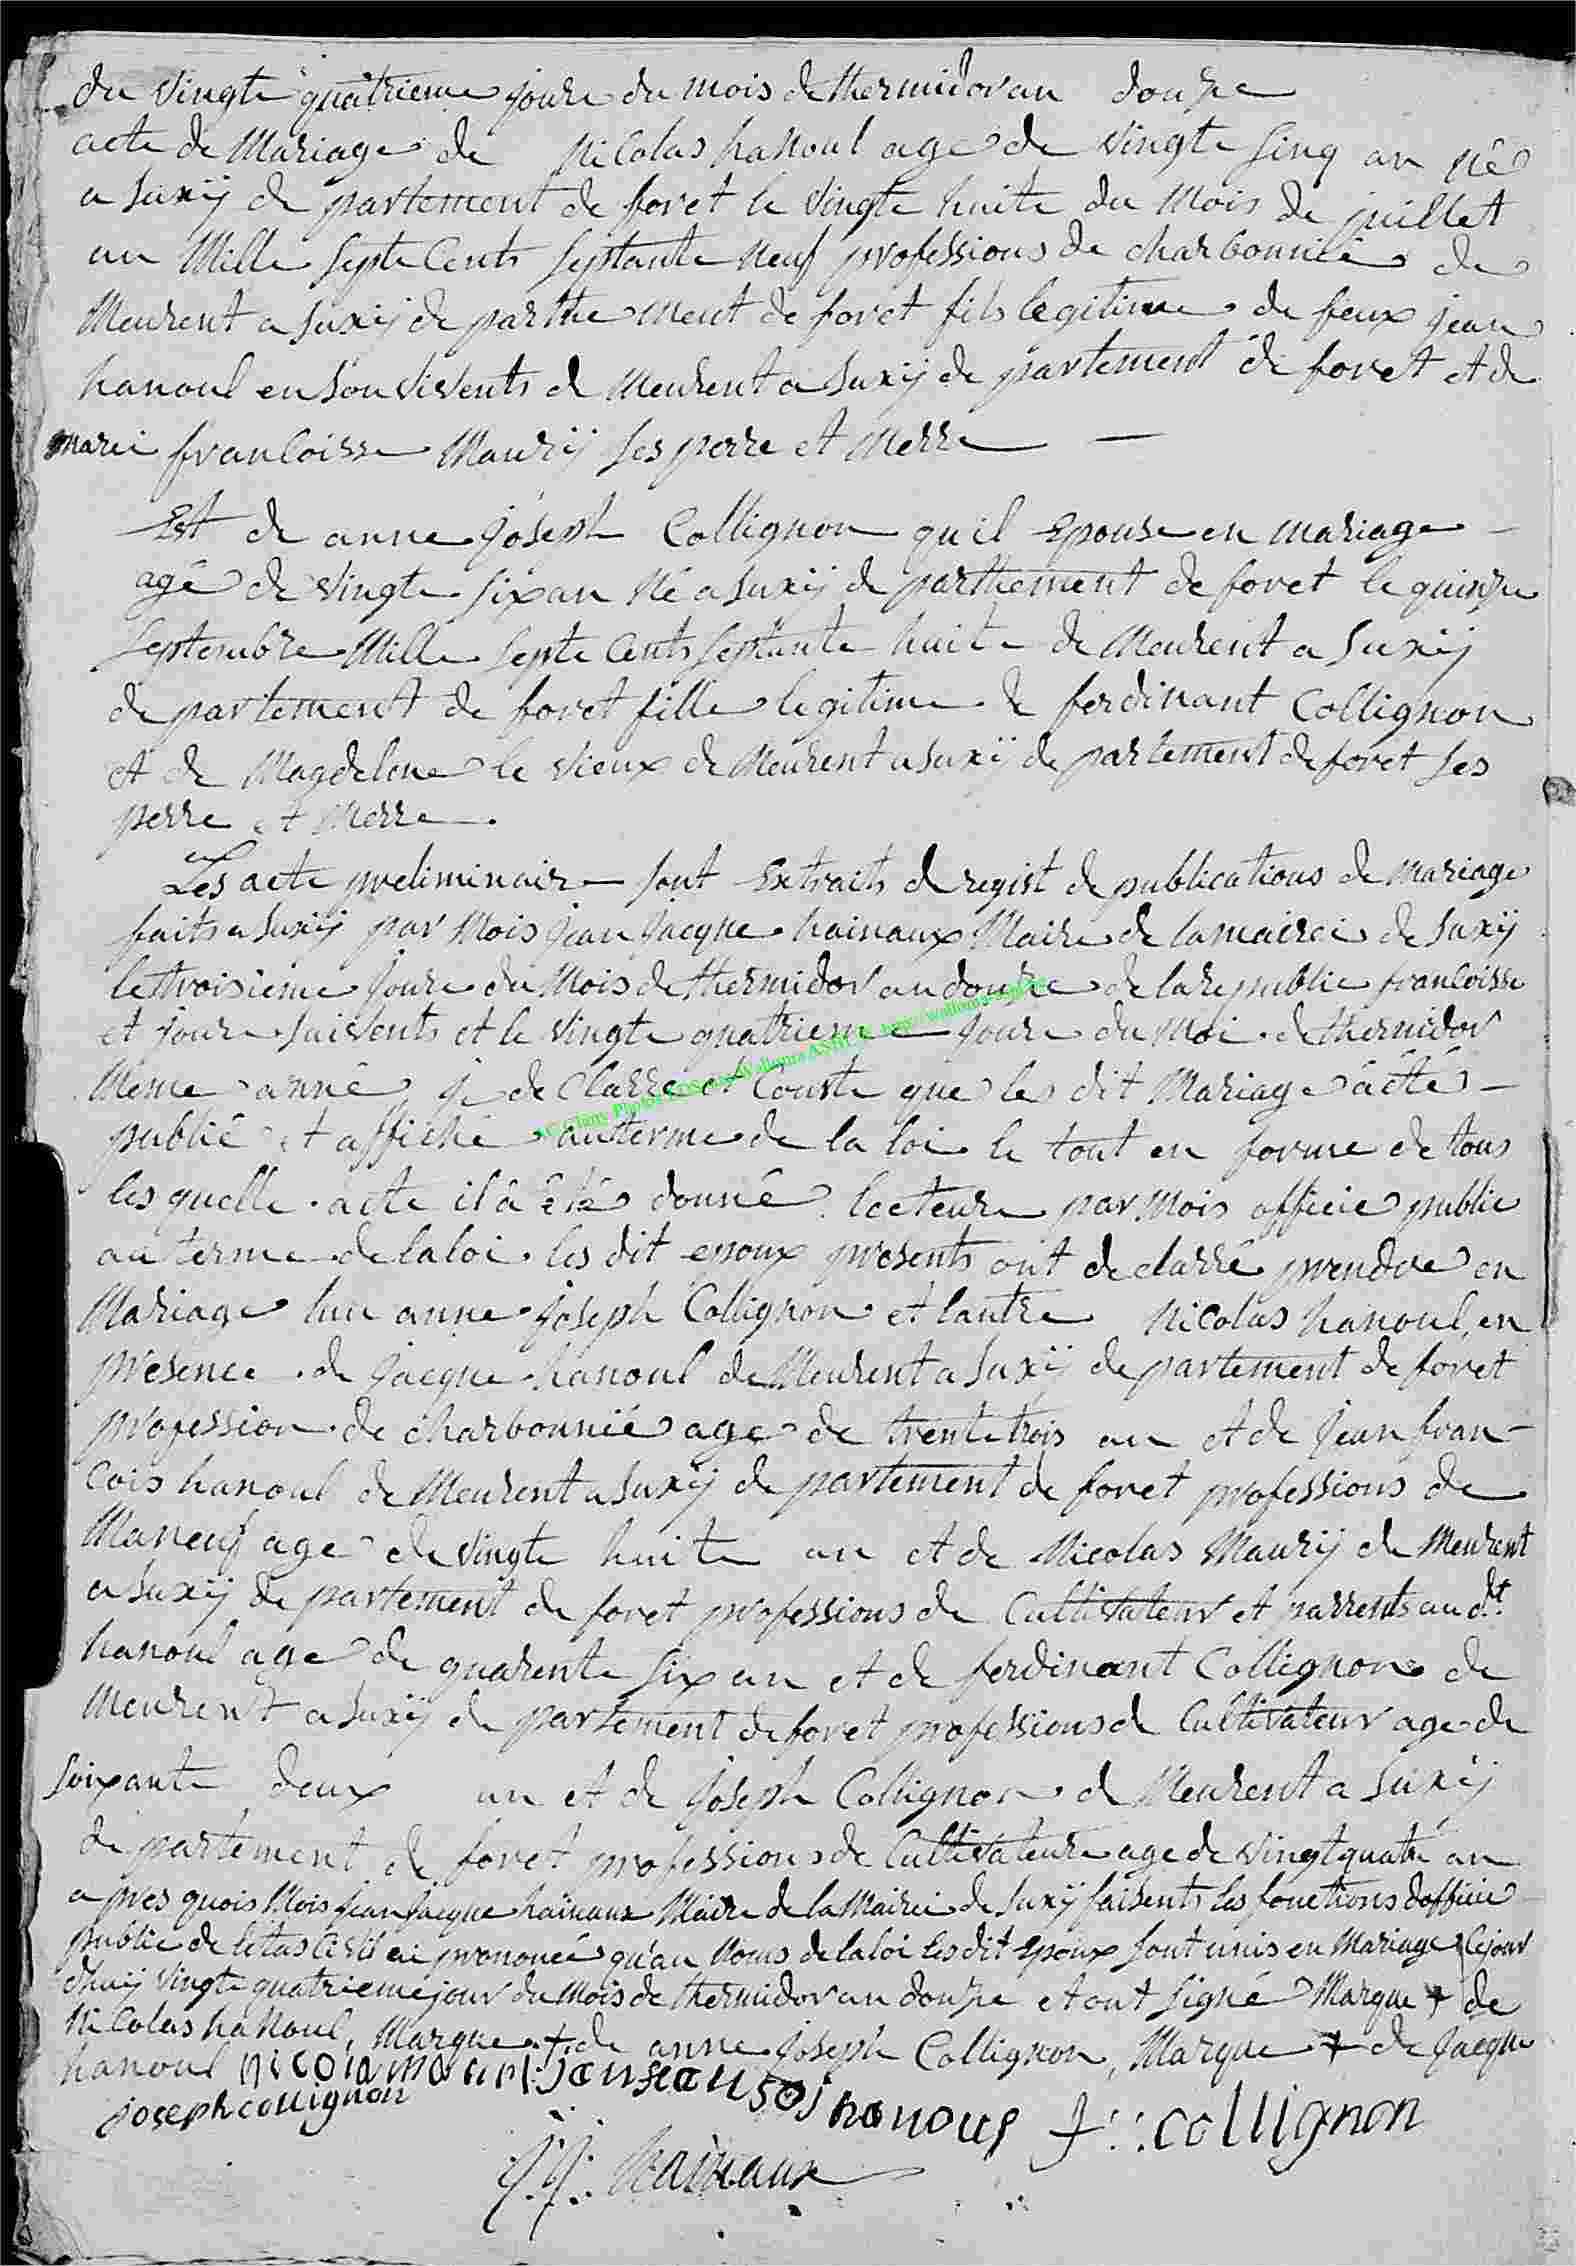 du Vingte quatrieme joure du mois de thermidor an douze
acte de Mariage de Nicolas hanoul age de Vingte sinq an né
a Suxÿ de partement de foret le Vingte huite du Mois de juillet
an Mille septe Cents septante Neuf professions de charbonnié de
Meurent a Suxÿ de parthe ment de foret fils legitime de feux jean
hanoul en son vivents de Meurent a Suxÿ de partement de foret et de
marei francoisse Maurÿ ses perre et Merre —
Est de anne joseph Collignon qu il Epouse en mariage —
agé de Vingte six an Né a Suxÿ de parthement de foret le quinze
septembre Mille septe Cents septante huite de Meurent a Suxÿ
de partement de foret fille legitime de ferdinant Collignon
et de Magdelene le vieux de Meurent a Suxÿ de partement de foret ses
perre et Merre.
Les acte preliminaire sont Extraits de regist de publications de mariage
faits a Suxÿ par Mois jean jacque hainaux Maire de la mairei de Suxÿ
le troisieme joure du Mois de thermidor an douze de la republic francoisse
et joure suivents et le Vingte quatrieme joure du Moi de thermidor
Meme anné je de Clarre et Conste que les dit Mariage a été —
publié et affiché au terme de la loi le tout en forme de tous
les quelle acte il â été donné lecteure par Mois officié public
au terme de la loi les dit epoux presents ont de clarré prendre en
Mariage lun anne joseph Collignon et lautre Nicolas hanoul en
presence de jacque hanoul de Meurent a Suxÿ de partement de foret
profession de charbonnié age de trente trois an et de jean fran-
cois hanoul de Meurent a Suxÿ de partement de foret professions de
Maneuf age de Vingte huite an et de Nicolas Maurÿ de Meurent
a Suxÿ de partement de foret professions de Cultivateur et parrents au dt
hanoul age de quarente six an et de ferdinant Collignon de
Meurent a Suxÿ de partement de foret professions de Cultivateur age de
soixante deux an et de joseph Collignon de Meurent a Suxÿ
de partement de foret professions de Cultivateure age de Vingt quatre an
a pres quois Mois jean jacque hainaux Maire de la Mairei de Suxÿ faisents les fonctions dofficié
public de létas Civil ai prononcé qu'au Noms de la loi les dit Epoux sont unis en Mariage Cejour
dhuÿ Vingte quatrieme jour du Mois de thermidor an douze et ont signé Marque + de
Nicolas haNoul, Marque + de anne joseph Collignon, Marque + de jacque
hanoul
joseph collignon
hanoul f::collignon
J:J: hainaux